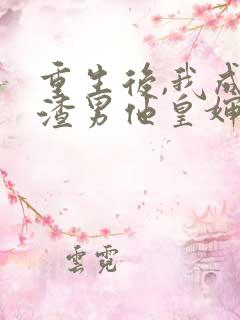 重生後,我成
渣男他皇嬸
雲霓